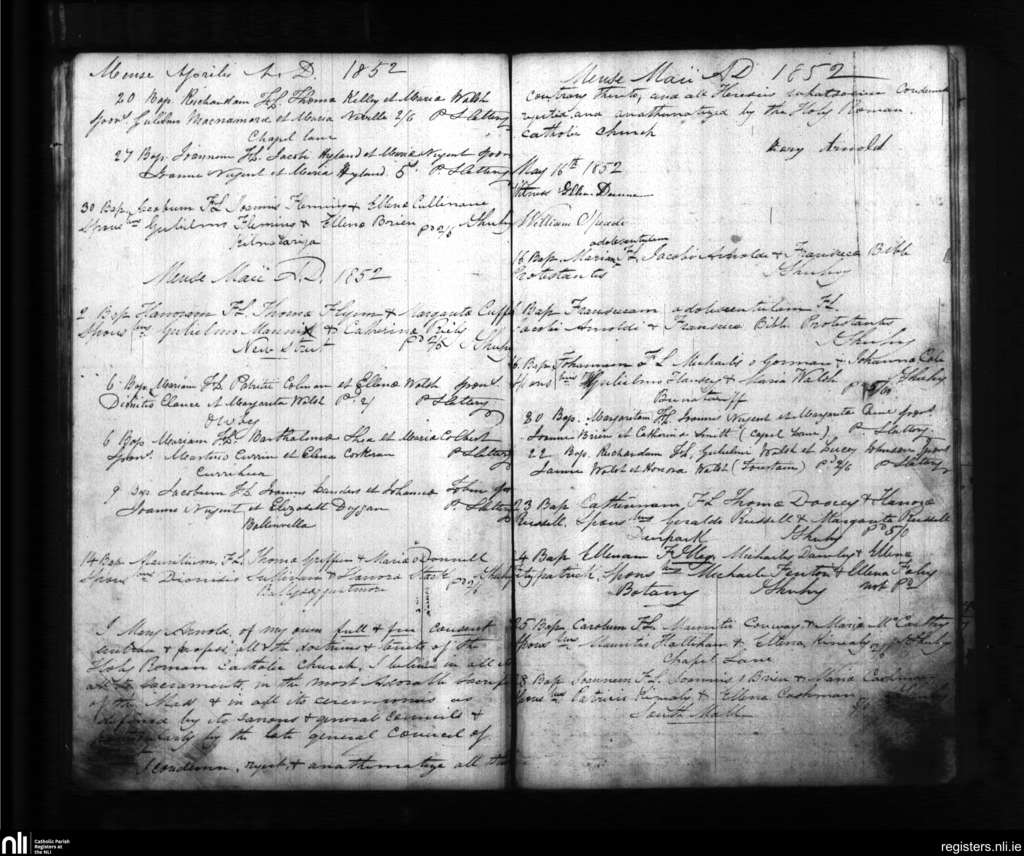 Mense Aprilis A. D. 1852
20 Bap. Richardum F.L. Thoma Kelly et Maria Walsh
Spons. Gulielmus Macnamara et Maria Neville 2/6 P Slattery
Chapel lane
27 Bap. Joannem F.L. Jacobi Hyland et Maria Nugent Spon
Joanne Nugent et Maria Hyland. 5s P Slattery
30 Bap. Jacobum F.L. Joannis Fleming & Ellena Cullenane
Spons bus Gulielmo Fleming & Ellena Brien
Mense Maii A.D. 1852
2 Bap Hanoram F.L. Thoma Flynn & Margarita Cuffe
Spons bus Gulielmo & Catherina
New Street
6 Bap. Mariam F.L. Patritii Colman et Ellena Walsh Spons.
Dionitio Clancy et Margarita Walsh P. 2/ P Slattery
6 Bap. Mariam F.L. Bartholomeo Shea et Maria Colbert
Spons. Martino Currin et Elena Corkran P Slattery
Curriheen
9 Bap. Jacobum F.L. Joannis Landers et Johanna Tobin Spon
Joannis Nugent et Elizabeth Duggan P. Slattery
Ballinvella
14 Bap. Mauritium F.L. Thoma Griffin & Maria Donnell
Spons bus Dionisio Sullivan & Hanora Stack
Ballysaggartmore
I Mary Arnold, of my own full & free consent
embrace & profess all the doctrines & tenets of the
Holy Roman Catholic Church, I believe in all
its sacraments, in the most Adorable Sacrifice
of the Mass, & in all its ceremonies as
defined by its canons & general councils &
particularly by the late general Council of
I condemn, reject, & anathematize all
Mense Maii A D 1852
contrary thereto, and all Heresies whatsoever Condemned
rejected and anathematized by the Holy Roman
Catholic Church
Mary Arnold
May 16th 1852
Witness Ellen Dunne
William Speade
adolescentulam
16 Bap. Mariam F.L. Jacobi Arnolde & Francisca Bibb
Protestantes
Bap Franciscam adolescentulam F.L.
Jacobi Arnoldi & Francisca Bibb Protestantes
Bap. Johannam F L Michaelis o Gorman & Johanna
Spons bus Gulielmo Flanders & Maria Walsh
20 Bap. Margaritam F.L. Joannis Nugent et Margarita Cane Spons
Joanne Brien et Catherina Smith (Capel lane) P Slattery
22 Bap. Richardum F.L. Gulielmi Walsh et Lucey Johnson Spons
Jacobo Walsh et Honora Walsh (Fountain) P. 2/6 P Slattery
23 Bap Catherinam F.L. Thoma Doocey & Hanora
Russell. Spons bus Geraldo Russell & Margarita Russell
Deerpark
24 Bap Ellenam F. Illeg. Michaelis Dawley & Ellena
Fitzpatrick Spons bus Michaele Fenton & Ellena Foley
Botany not Pd
25 Bap. Carolum F.L. Mauritii Conway & Maria McCarthy
Spons bus Mauritio Hallihan & Ellena Kinealy
Chapel Lane
28 Bap Joannem F.L. Joannis o Brien & Maria Cashman
Spons bus Patricio Kinealy & Ellena Cashman
South Mall
nli
Catholic Parish
Registers at
the NLI
registers.nli.ie